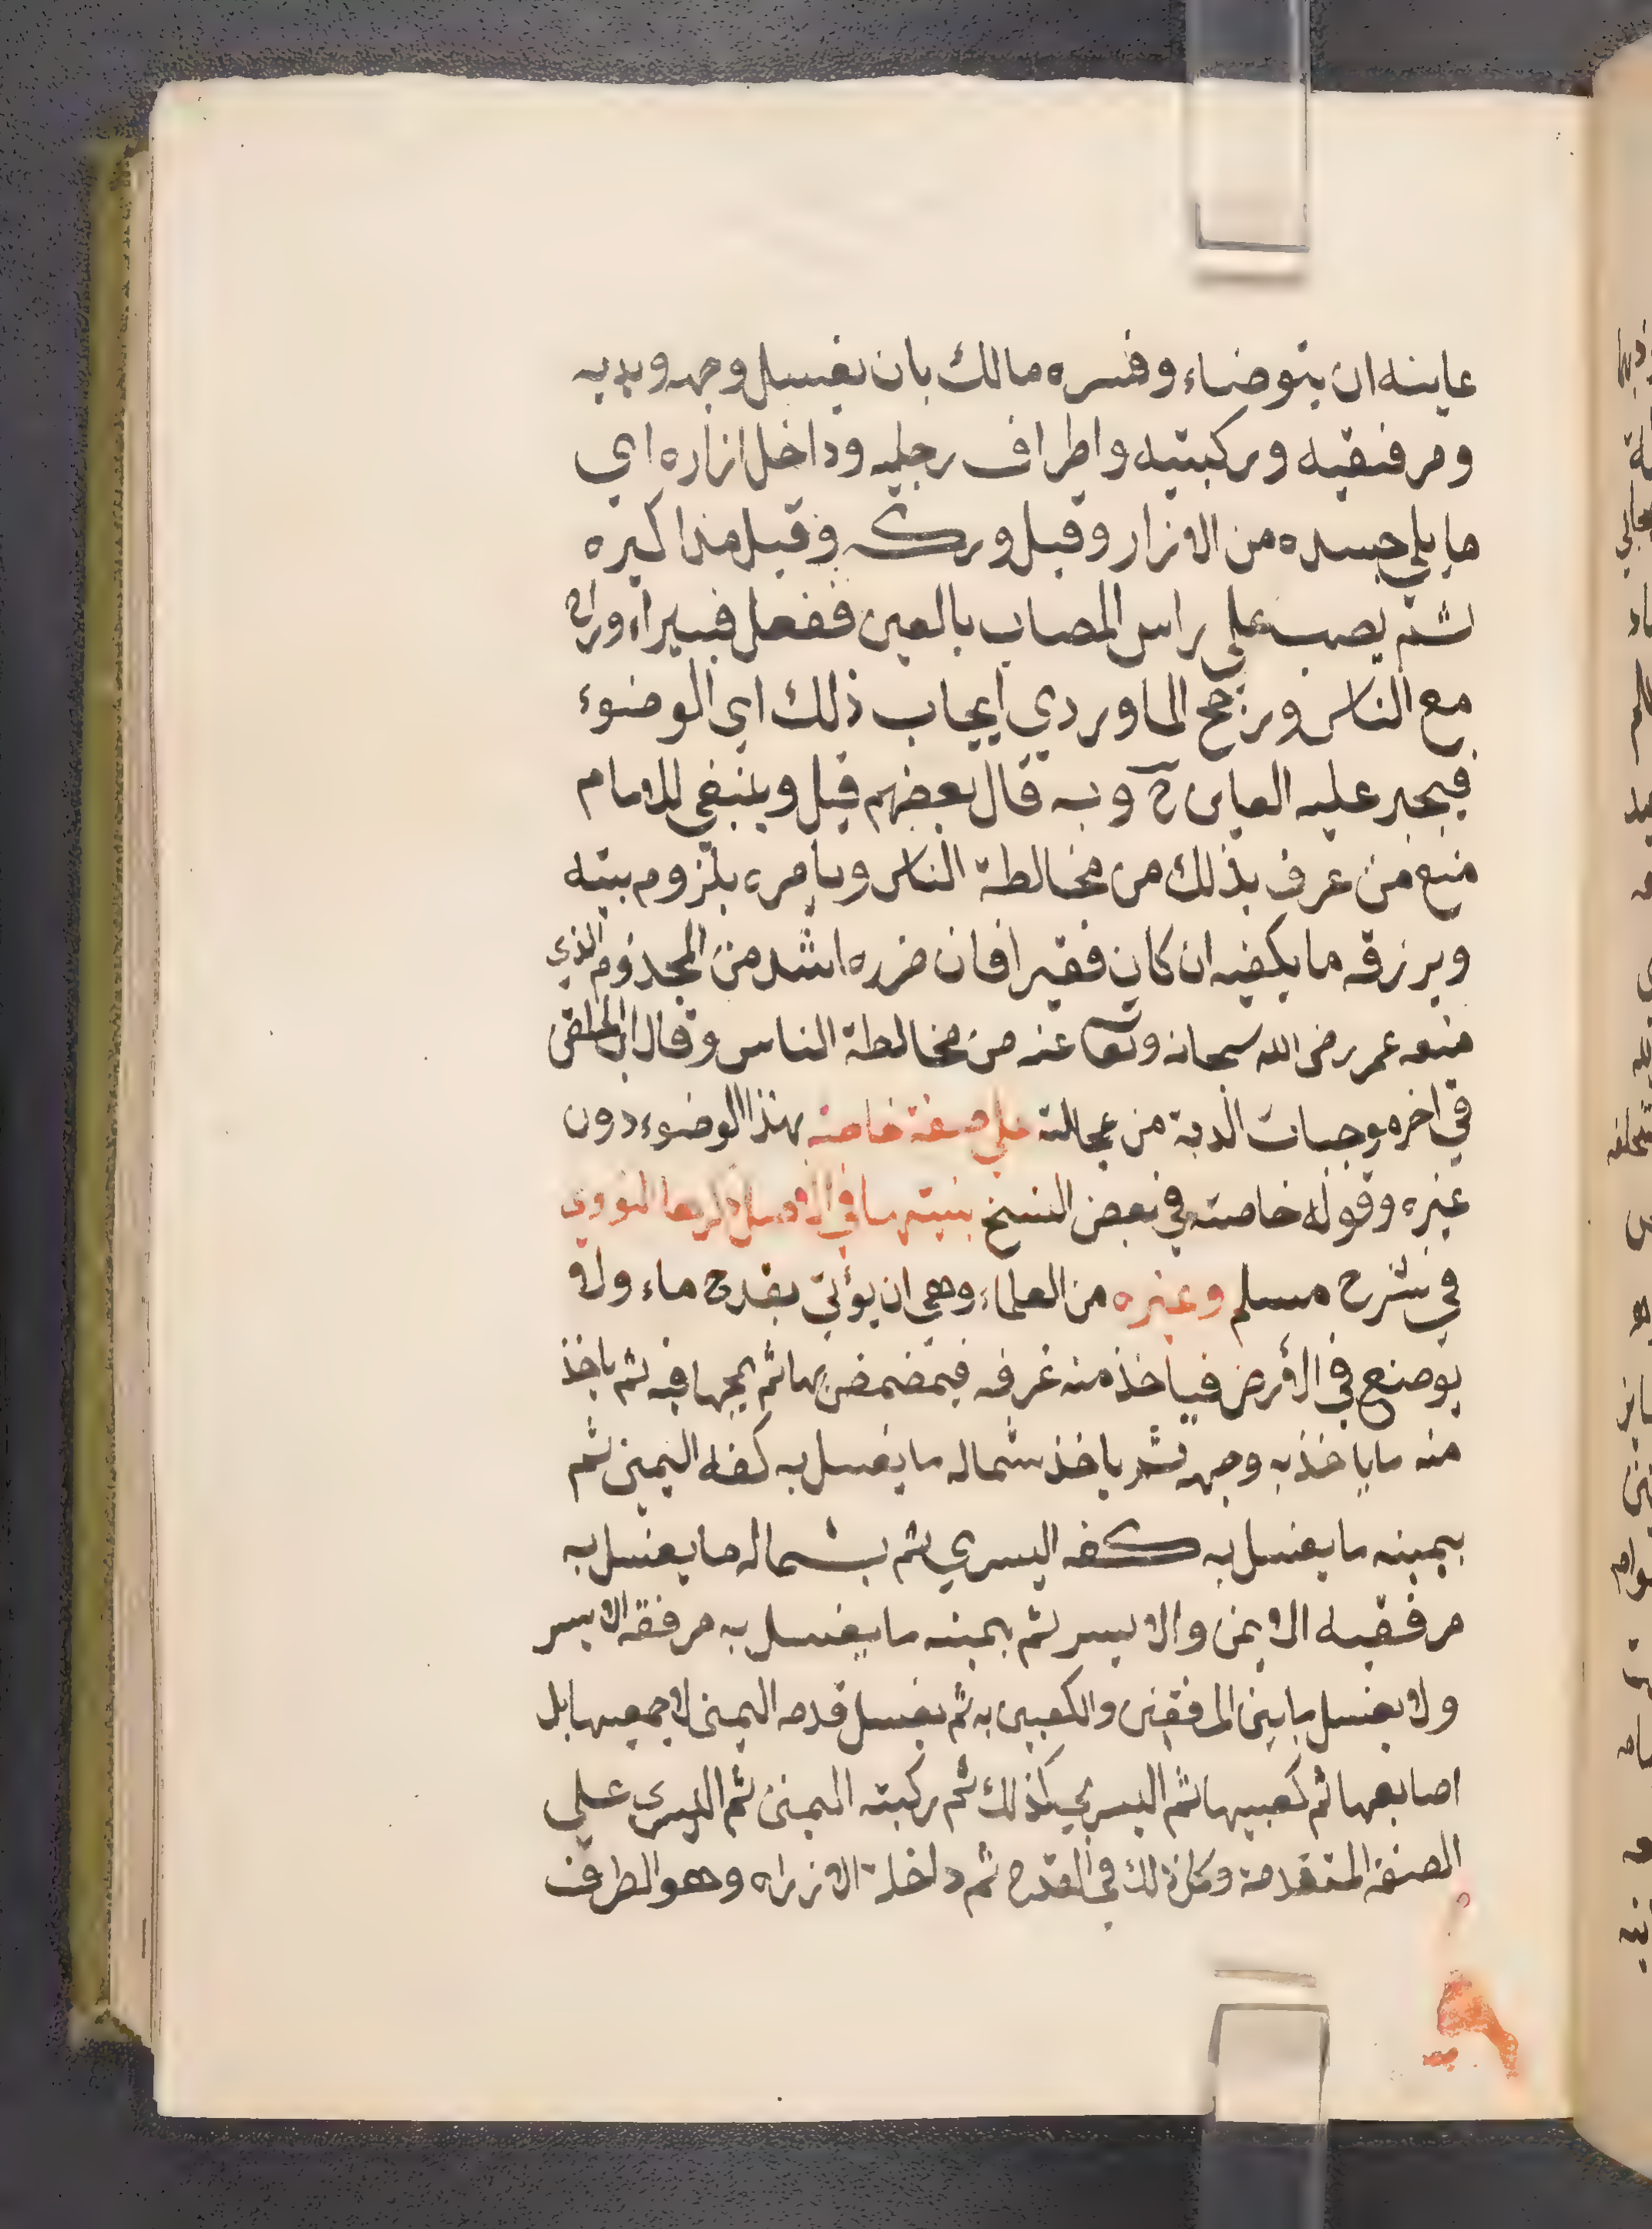 عاينه ان يتوضاء وفسره مالك بان يغسل وجهه ويديه
ومرفقيه وركبتيه واطراف رجليه وداخل ازاره اي
ما يلي جسده من الازار وقيل وركه وقيل مذاكيره
ثم يصب على راس المصاب بالعين ففعل فبيراء وراح
مع الناس ورجح الماوردي ايجاب ذلك اي الوضوء
فيجبر عليه العاين وبه قال بعضهم قيل وينبغي للامام
منع من عرف بذلك من مخالطة الناس ويامره بلزوم بيته
ويرزقه ما يكفيه ان كان فقيرا فان ضرره اشد من المجذوم الذي
منعه عمر رضى الله سبحانه وتعا عنه من مخالطة الناس وقال ابن الملقن
في اخر موجبات الدية من عجالته على صفة خاصة بهذا الوضوء دون
غيره وقوله خاصته في بعض النسخ بنيتها في الاصل ذكرها النووي
في شرح مسلم وغيره من العلماء وهي ان يؤتى بقدح ماء ولا
يوضع في الأرض فياخذ منه غرفه فيمضمض بها ثم يمجها فيه ثم ياخذ
منه ما ياخذ به وجهه ثم ياخذ شماله ما يغسل به كفه اليمنى ثم
بيمينه ما يغسل به كفه اليسري ثم بشماله ما يغسل به
مرفقيه الايمن والايسر ثم بيمينه ما يغسل به مرفقه الايسر
ولا يغسل ما بين المرفقين والكعبين به ثم يغسل قدمه اليمنى لا جميعها بل
اصابعها ثم كعبيها ثم اليسري كذلك ثم ركبته اليمنى ثم اليسرى علي
الصفة المتقدمة وكل ذلك في القدح ثم داخلة الازراه وهو الطرف